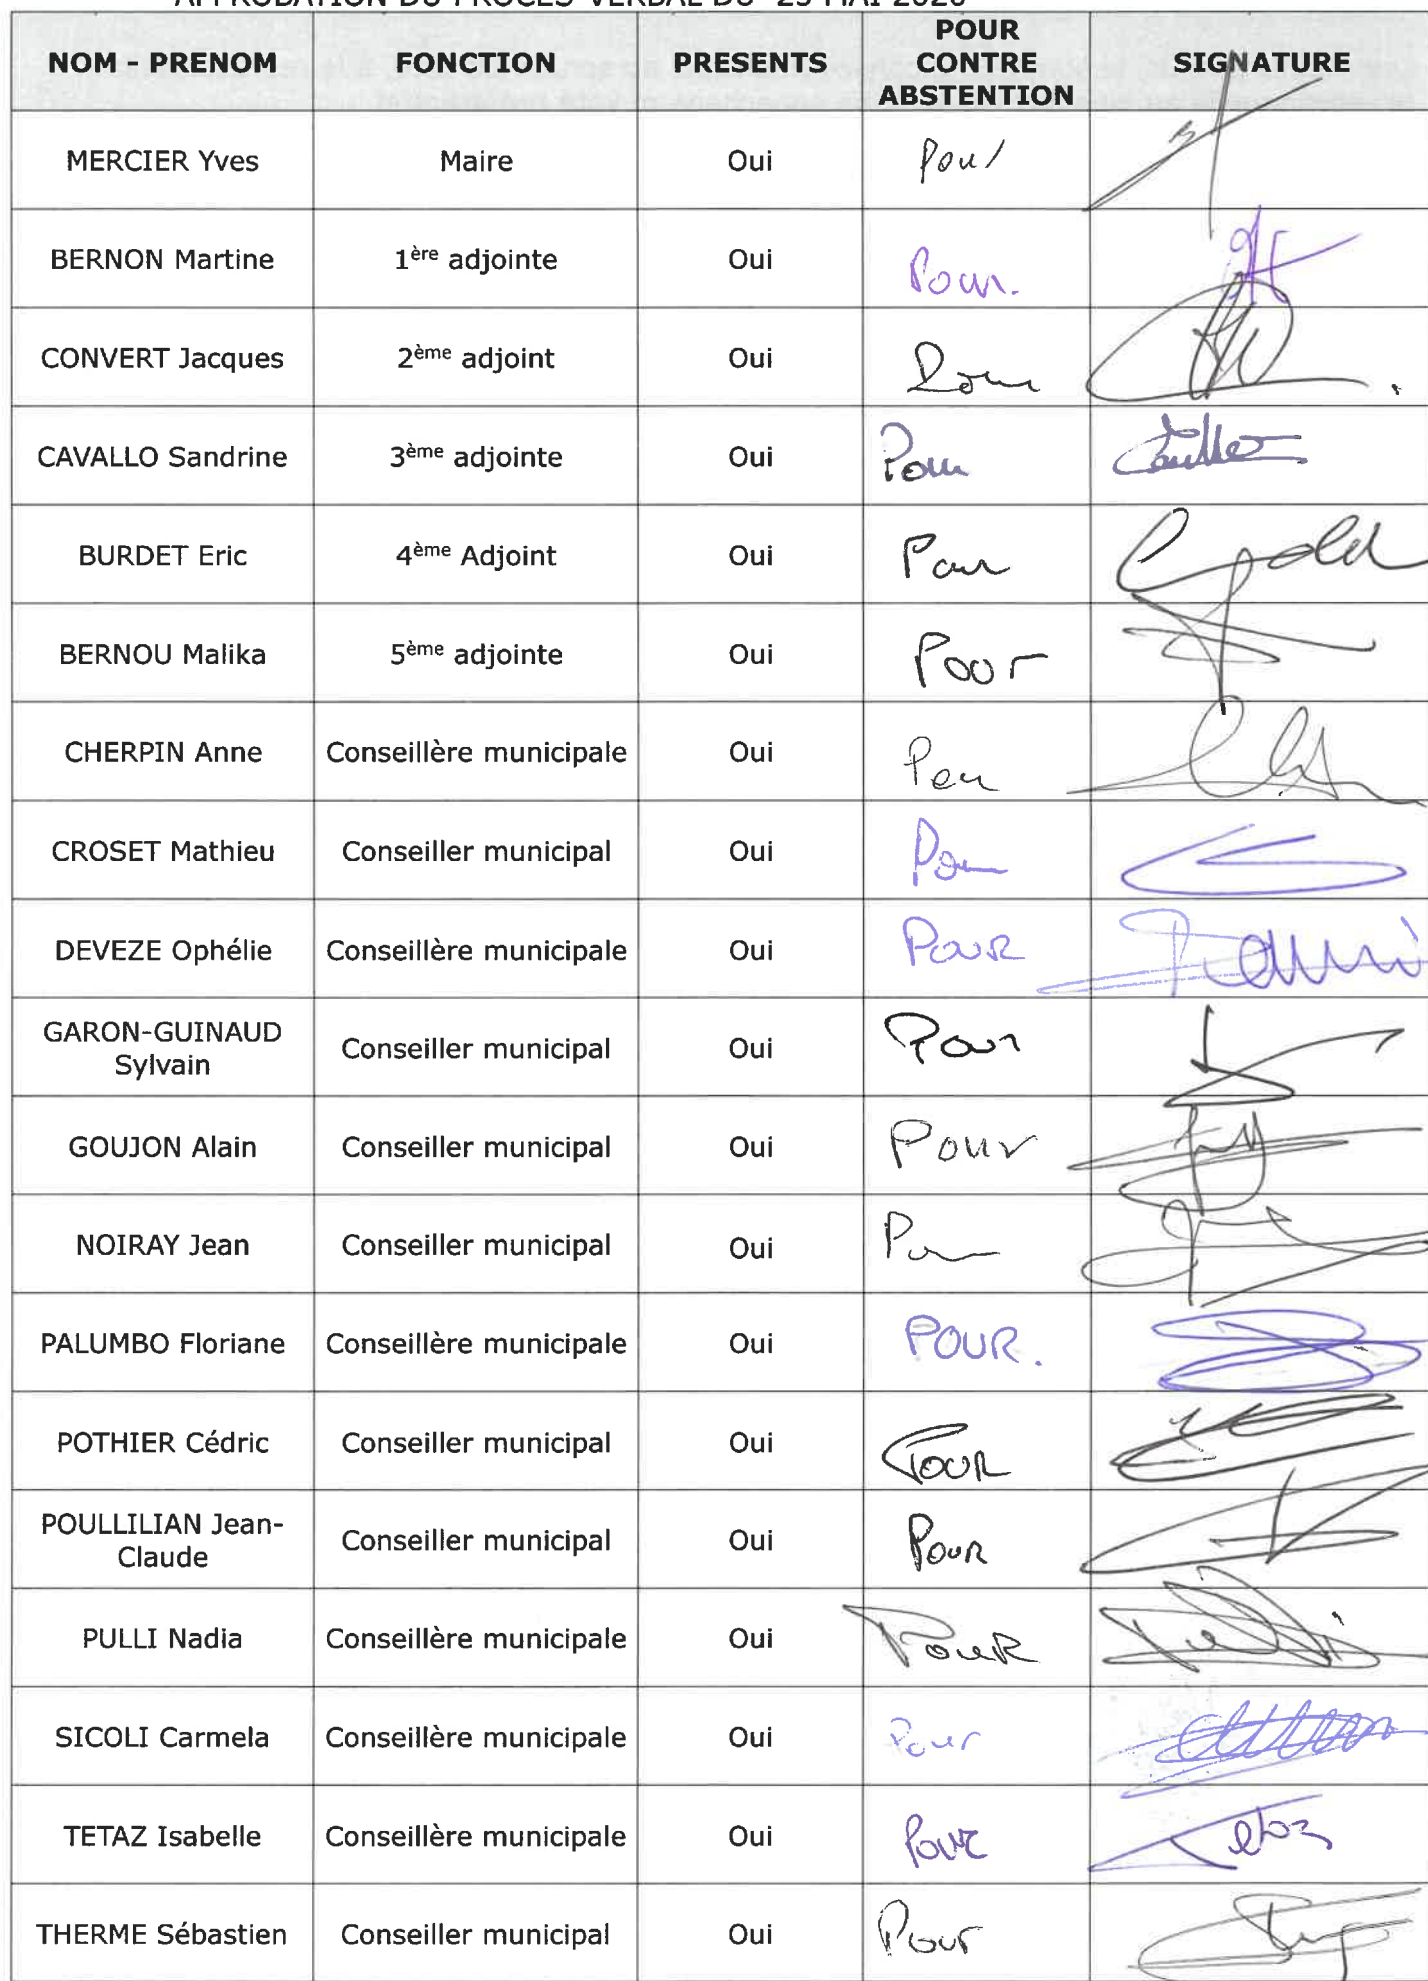 APPROBATION DU PROCES-VERBAL DU 25 MAI 2020
NOM - PRENOM FONCTION PRESENTS POUR CONTRE ABSTENTION SIGNATURE
MERCIER Yves Maire Oui Pour
BERNON Martine 1ère adjointe Oui Pour.
CONVERT Jacques 2ème adjoint Oui Pour
CAVALLO Sandrine 3ème adjointe Oui Pour
BURDET Eric 4ème Adjoint Oui Pour
BERNOU Malika 5ème adjointe Oui Pour
CHERPIN Anne Conseillère municipale Oui Pour
CROSET Mathieu Conseiller municipal Oui Pour
DEVEZE Ophélie Conseillère municipale Oui POUR
GARON-GUINAUD Sylvain Conseiller municipal Oui Pour
GOUJON Alain Conseiller municipal Oui Pour
NOIRAY Jean Conseiller municipal Oui Pour
PALUMBO Floriane Conseillère municipale Oui POUR.
POTHIER Cédric Conseiller municipal Oui POUR
POULLILIAN Jean-Claude Conseiller municipal Oui Pour
PULLI Nadia Conseillère municipale Oui Pour
SICOLI Carmela Conseillère municipale Oui Pour
TETAZ Isabelle Conseillère municipale Oui Pour
THERME Sébastien Conseiller municipal Oui Pour